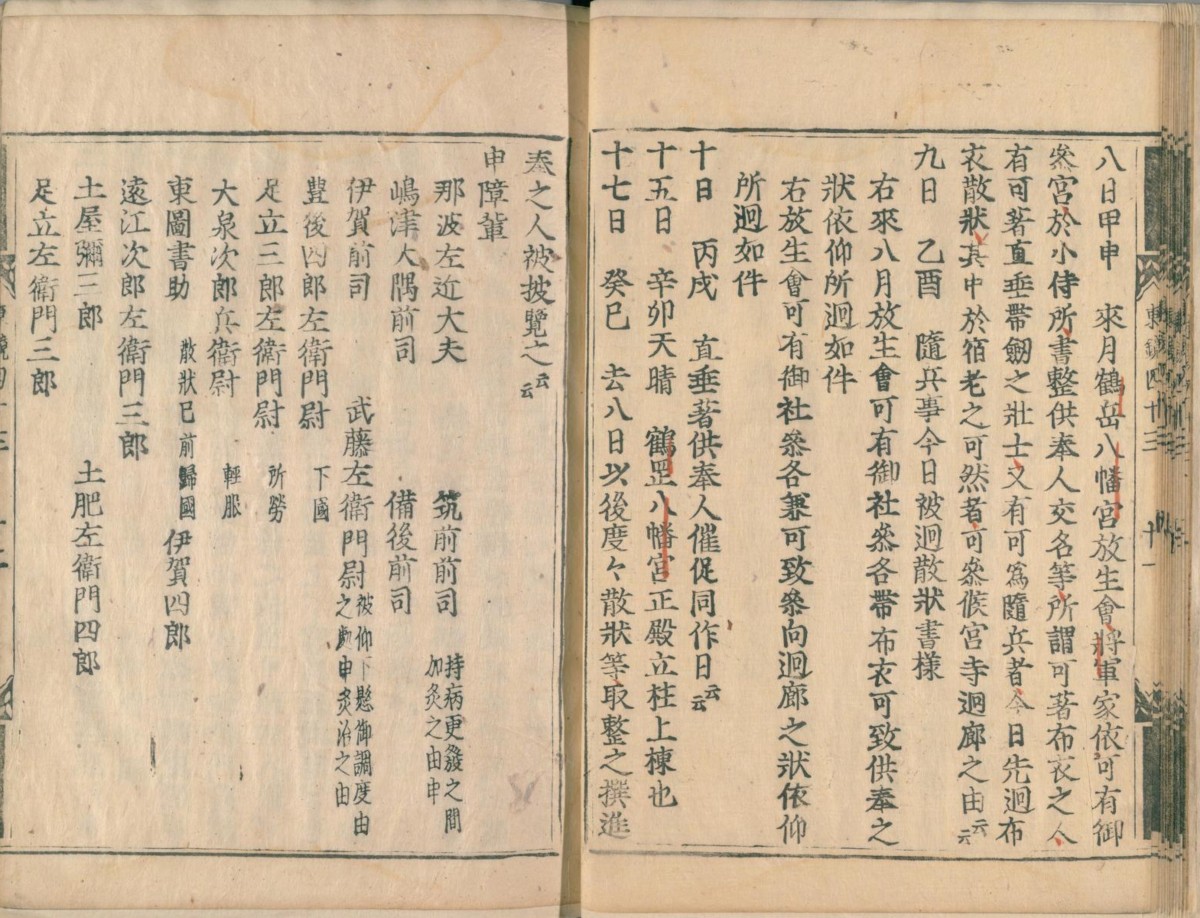 八日甲申　來月鶴岳八幡宮放生會將軍家依可有御
參宮於小侍所書整供奉人交名等所謂可著布衣之人
有可著直垂帶劔之壯士又有可爲隨兵者今日先迴布
衣散狀其中於宿老之可然者可參候宮寺迴廊之由云云
九日　乙酉　隨兵事今日被迴散狀書樣
右來八月放生會可有御社參各帶布衣可致供奉之
狀依仰所迴如件
右放生會可有御社參各兼可致參向迴廊之狀依仰
所迴如件
十日　丙戌　直垂著供奉人催促同作日云云
十五日　辛卯天晴　鶴罡八幡宮正殿立柱上棟也
十七日　癸巳　去八日以後度々散狀等取整之撰進
東鏡四十三　十一
奉之人被披覽之云云
申障輩
那波左近大夫　筑前前司　持病更發之間加灸之由申
嶋津大隅前司　備後前司
伊賀前司　武藤左衛門尉　被仰下懸御調度由之處申灸治之由
豊後四郎左衛門尉　下國
足立三郎左衛門尉　所勞
大泉次郎兵衛尉　輕服
東圖書助　散狀已前歸國　伊賀四郎
遠江次郎左衛門三郎
土屋彌三郎　土肥左衛門四郎
足立左衛門三郎